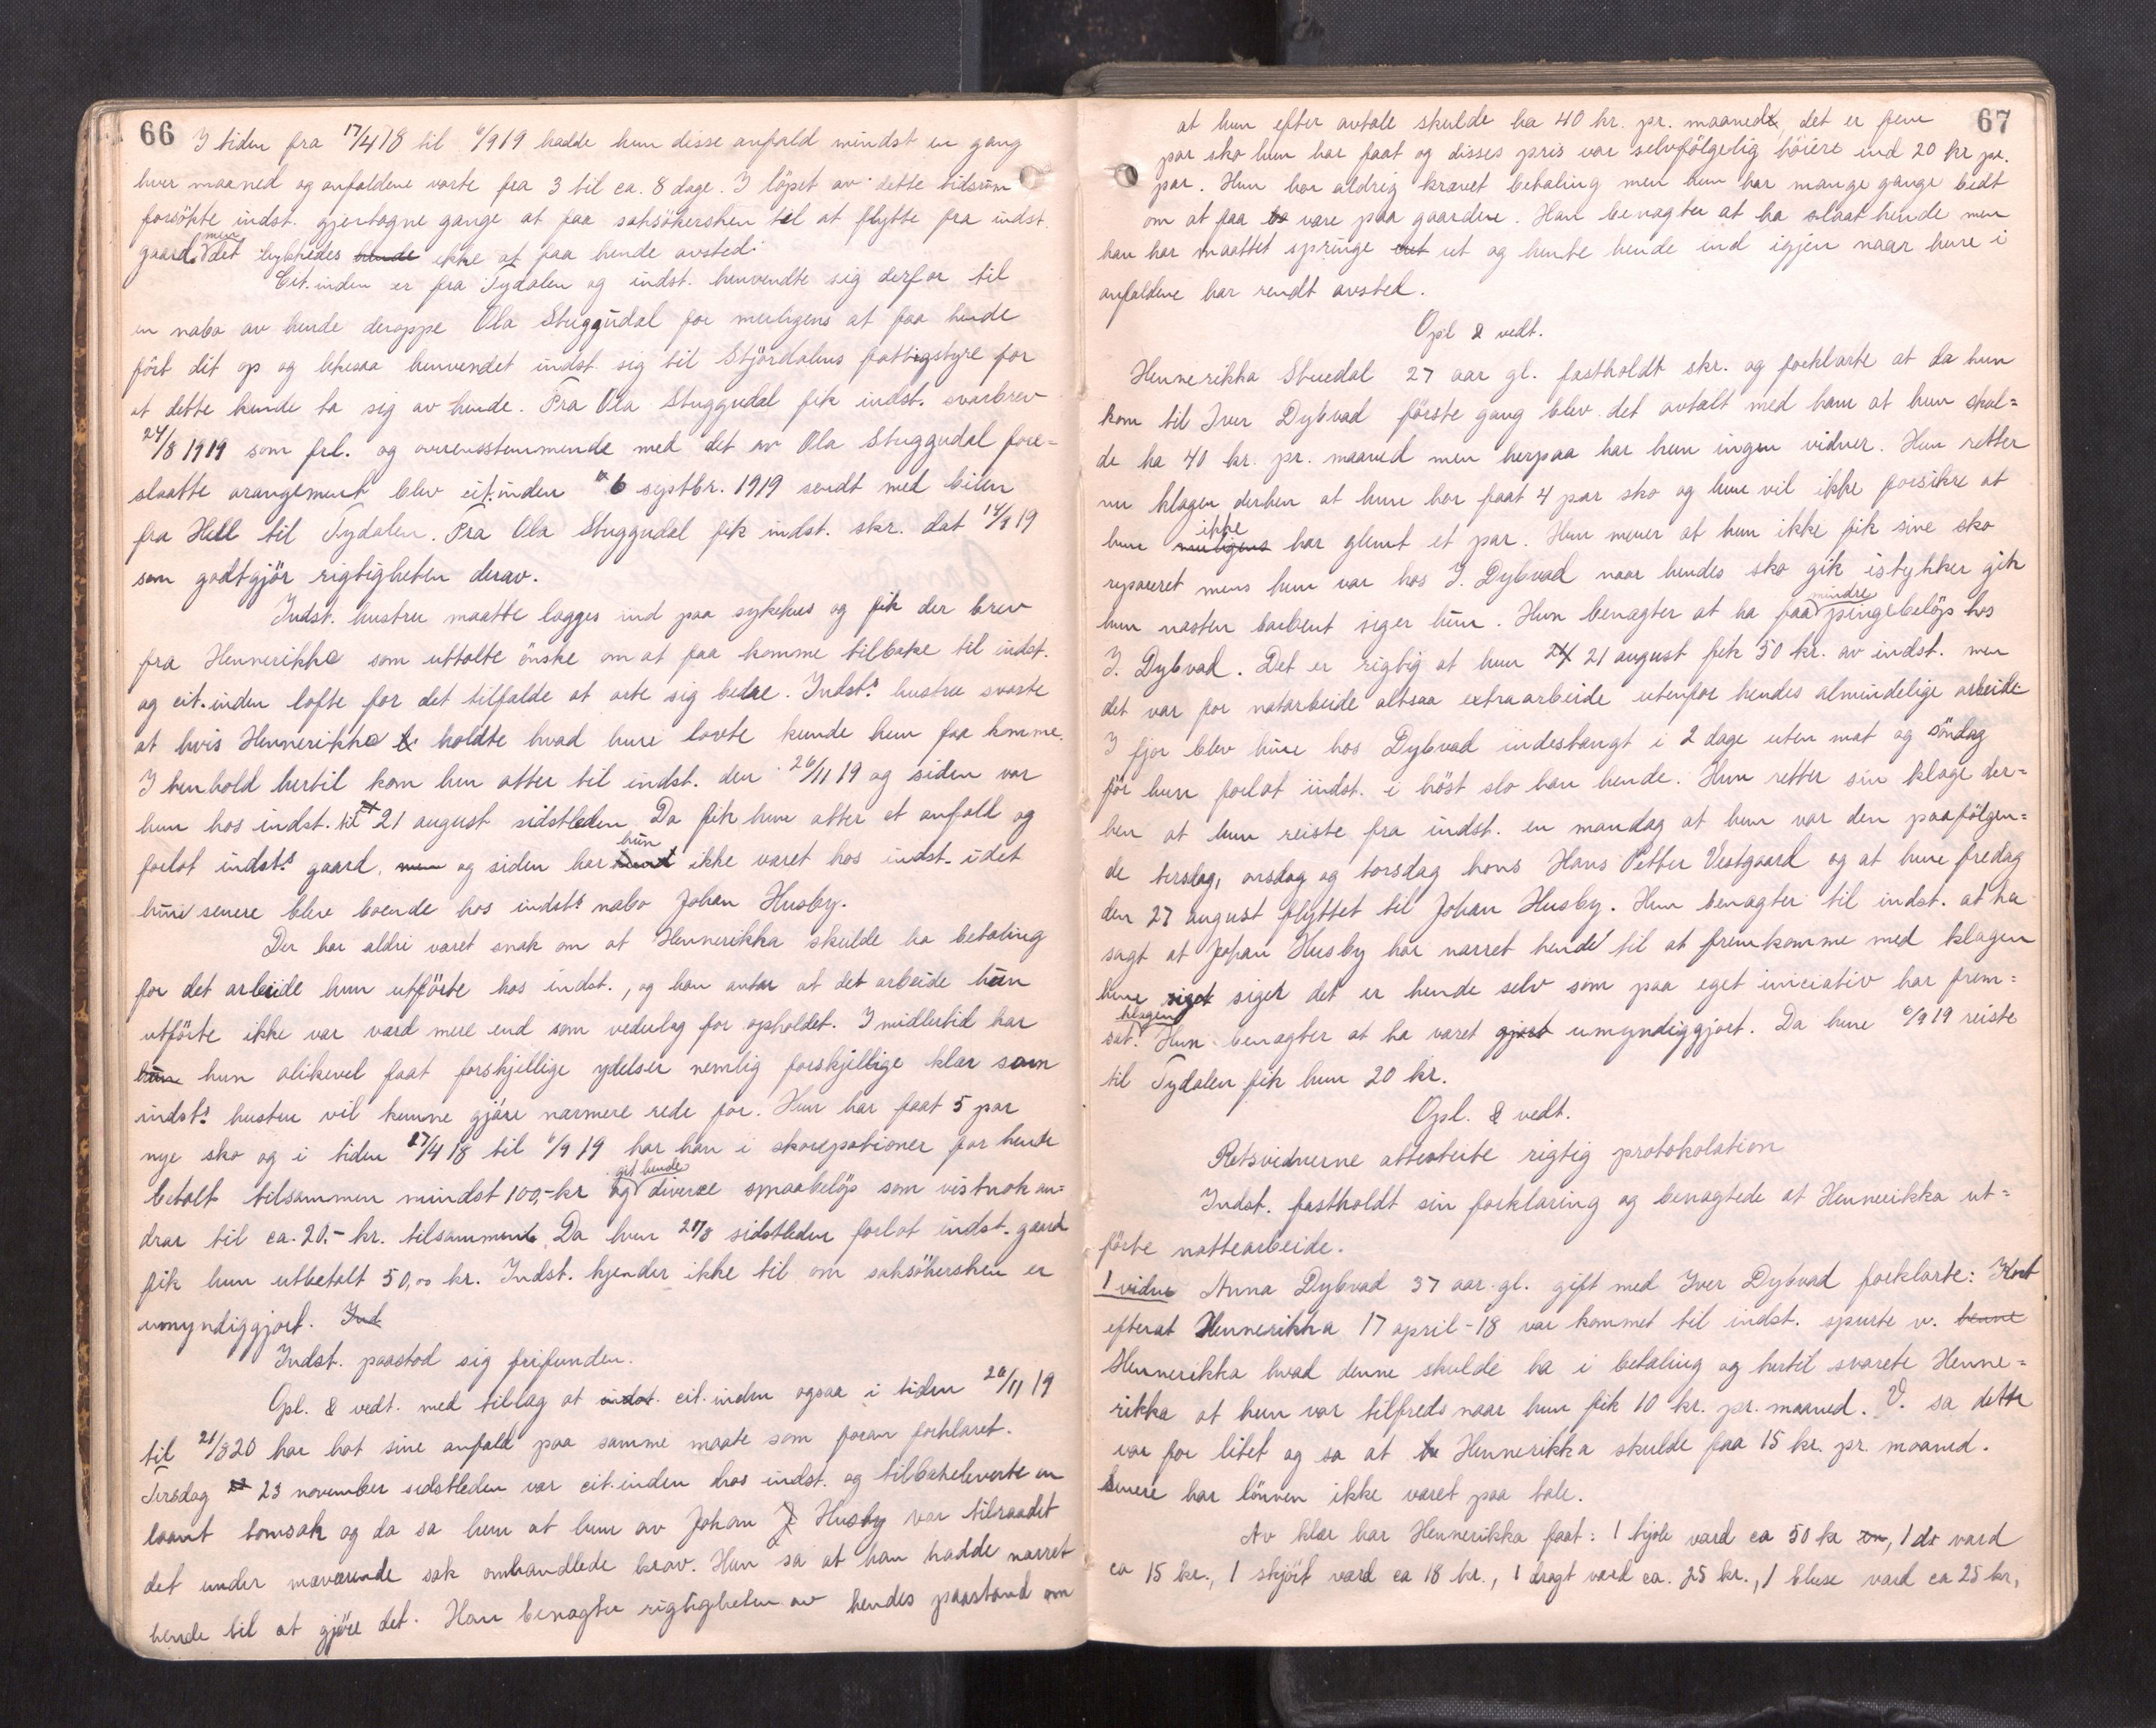 66
I tiden fra 17/4 18 til 6/9 19 hadde hun disse anfald mindst en gang
hver maaned og anfaldene varte fra 3 til ca. 8 dage. I löpet av dette tidsrum
forsökte indst. gjentagne gange at faa saksökersken til at flytte fra indst.
gaard, men det lykkedes hende ikke at faa hende avsted.
Cit.inden er fra Tydalen og indst. henvendte sig derfor til
en nabo av hende deroppe Ola Stuggudal for muligens at faa hende
fört dit op og likesaa henvendet indst. sig til Stjördalens fattigstyre for
at dette kunde ta sig av hende. Fra Ola Stuggudal fik indst. svarbrev
24/8 1919 som frl. og overensstemmende med det av Ola Stuggudal fore=
slaatte arangement blev cit.inden 6 septbr. 1919 sendt med bilen
fra Hell til Tydalen. Fra Ola Stuggudal fik indst. skr. dat 14/9 19
som godtgjör rigtigheten derav.
Indst. hustru maatte lægges ind paa sykehus og fik der brev
fra Hennerikke som uttalte önske om at faa komme tilbake til indst.
og cit.inden lofte for det tilfælde at arte sig bedre. Indst.s hustru svarte
at hvis Hennerikke holdte hvad hun lovte kunde hun faa komme.
I henhold hertil kom hun atter til indst. den 26/11 19 og siden var
hun hos indst. til 21 august sidstleden. Da fik hun atter et anfald og
forlot indst.s gaard, men og siden har hun ikke været hos indst. idet
hun senere blev boende hos indst.s nabo Johan Husby.
Der har aldri været snak om at Hennerikka skulde ha betaling
for det arbeide hun utförte hos indst., og han antar at det arbeide hun
utförte ikke var værd mere end som vederlag for opholdet. Imidlertid har
hun hun alikevel faat forskjellige ydelser nemlig forskjellige klær som
indst.s hustru vil kunne gjöre nærmere rede for. Hun har faat 5 par
nye sko og i tiden 17/4 18 til 6/9 19 har han i skoreparationer for hende
betalt tilsammen mindst 100,- kr og git hende diverse smaabelöp som vistnok an=
drar til ca. 20.- kr. tilsammen. Da hun 21/8 sidstleden forlot indst. gaard
fik hun utbetalt 50,00 kr. Indst. kjender ikke til om saksökersken er
umyndiggjort. Ind
Indst. paastod sig frifunden.
Opl. & vedt. med tillæg at indst. cit.inden ogsaa i tiden 26/11 19
til 21/8 20 har hat sine anfald paa samme maate som foran forklaret.
Tirsdag 23 november sidstleden var cit.inden hos indst. og tilbakeleverte en
laant tomsæk og da sa hun at hun av Johan J. Husby var tilraadet
det under nærværende sak omhandlede krav. Hun sa at han hadde narret
hende til at gjöre det. Han benægter rigtigheten av hendes paastand om
67
at hun efter avtale skulde ha 40 kr. pr. maaned, det er fem
par sko hun har faat og disses pris var selvfölgelig höiere end 20 kr pr.
par. Hun har aldrig krævet betaling men hun har mange gange bedt
om at faa være paa gaardene. Han benægter at ha slaat hende men
han har maattet springe ut og hente hende ind igjen naar hun i
anfaldene har rendt avsted.
Opl & vedt.
Hennerikka Stuedal 27 aar gl. fastholdt skr. og forklarte at da hun
kom til Iver Dybvad förste gang blev det avtalt med ham at hun skul=
de ha 40 kr. pr. maaned men herpaa har hun ingen vidner. Hun retter
nu klagen derhen at hun har faat 4 par sko og hun vil ikke forsikre at
hun muligens ikke har glemt et par. Hun mener at hun ikke fik sine sko
repareret mens hun var hos I. Dybvad naar hendes sko gik istykker gik
hun næsten barbent siger hun. Hun benægter at ha faat mindre pengebelöp hos
I. Dybvad. Det er rigtig at hun 21 august fik 50 kr. av indst. men
det var for natarbeide altsaa extraarbeide utenfor hendes almindelige arbeide
I fjor blev hun hos Dybvad indestængt i 2 dage uten mat og söndag
för hun forlot indst. i höst slo han hende. Hun retter sin klage der=
hen at hun reiste fra indst. en mandag at hun var den paafölgen=
de tirsdag, onsdag og torsdag hons Hans Petter Vestgaard og at hun fredag
den 27 august flyttet til Johan Husby. Hun benægter til indst. at ha
sagt at Johan Husby har narret hende til at fremkomme med klagen
hun siger siger det er hende selv som paa eget iniciativ har frem=
sat klagen. Hun benægter at ha været gjort umyndiggjort. Da hun 6/9 19 reiste
til Tydalen fik hun 20 kr.
Opl. & vedt.
Retsvidnerne attesterte rigtig protokolation
Indst. fastholdt sin forklaring og benægtede at Hennerikka ut=
förte nattearbeide.
1 vidne Anna Dybvad 37 aar gl. gift med Iver Dybvad forklarte: Kort
efterat Hennerikka 17 april -18 var kommet til indst. spurte v. henne
Hennerikka hvad denne skulde ha i betaling og hertil svarete Henne=
rikka at hun var tilfreds naar hun fik 10 kr. pr. maaned. V. sa dette
var for litet og sa at Hennerikka skulde faa 15 kr. pr. maaned.
Senere har lönnen ikke været paa tale.
Av klær har Hennerikka faat: 1 kjole værd ca 50 kr, 1 do værd
ca 15 kr., 1 skjört værd ca 18 kr., 1 dragt værd ca. 25 kr., 1 bluse værd ca 25 kr,